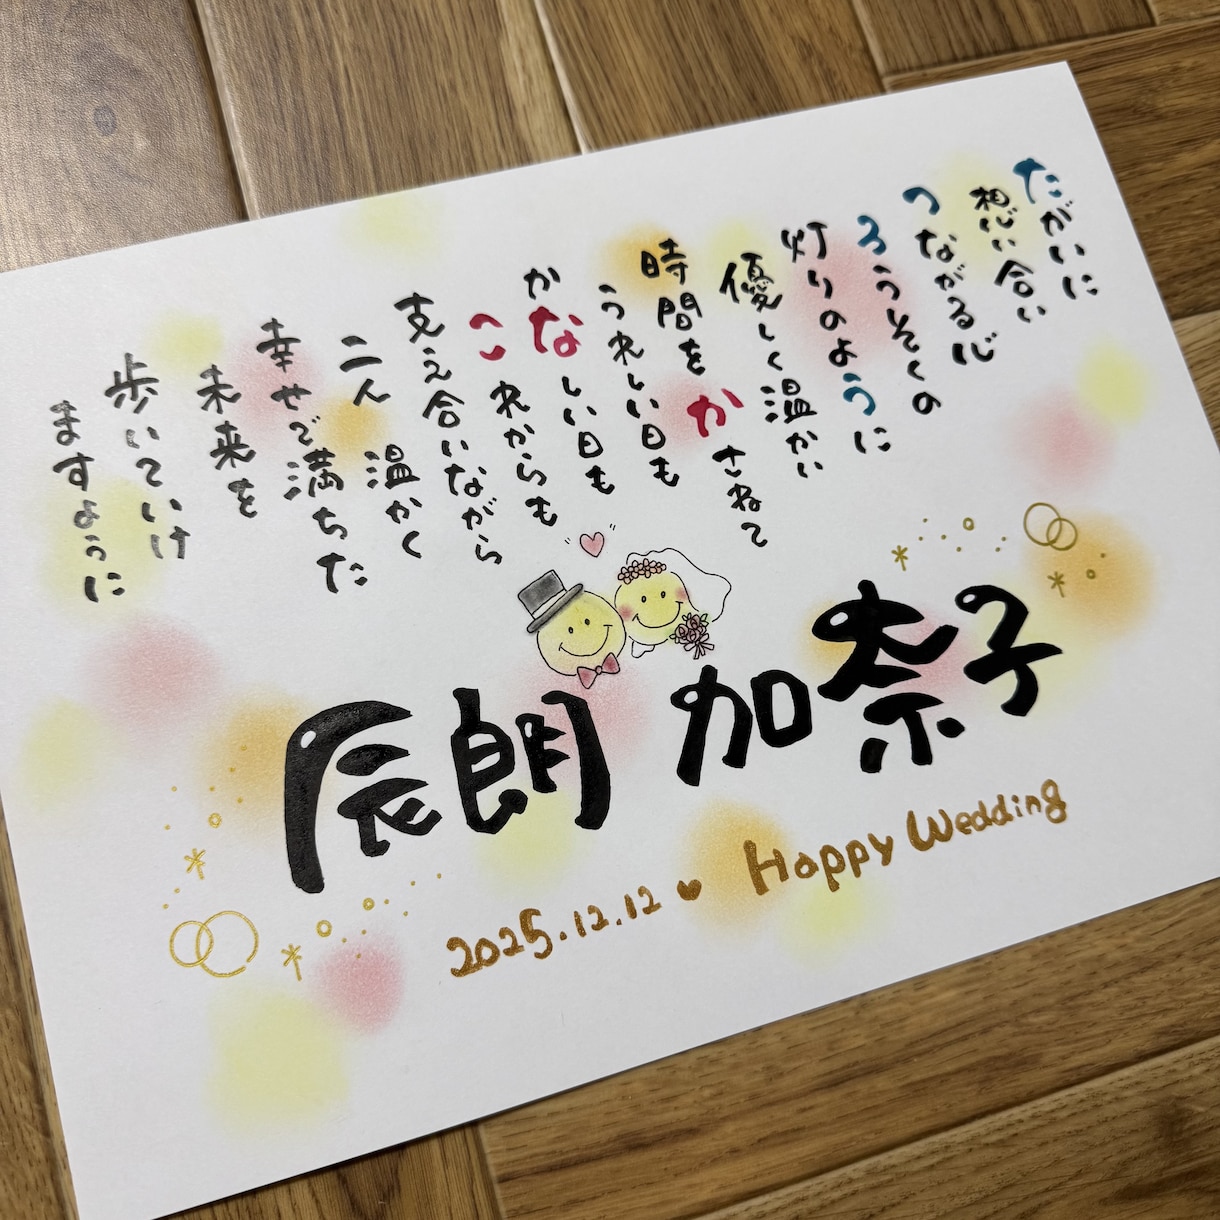 たがいに
想い合い
つながる心
ろうそくの
灯りのように
優しく温かい
時間をかさねて
うれしい日も
かなしい日も
これからも
支え合いながら
二人 温かく
幸せで満ちた
未来を
歩いていけ
ますように
辰朗 加奈子
2025.12.12 ♥ Happy Wedding